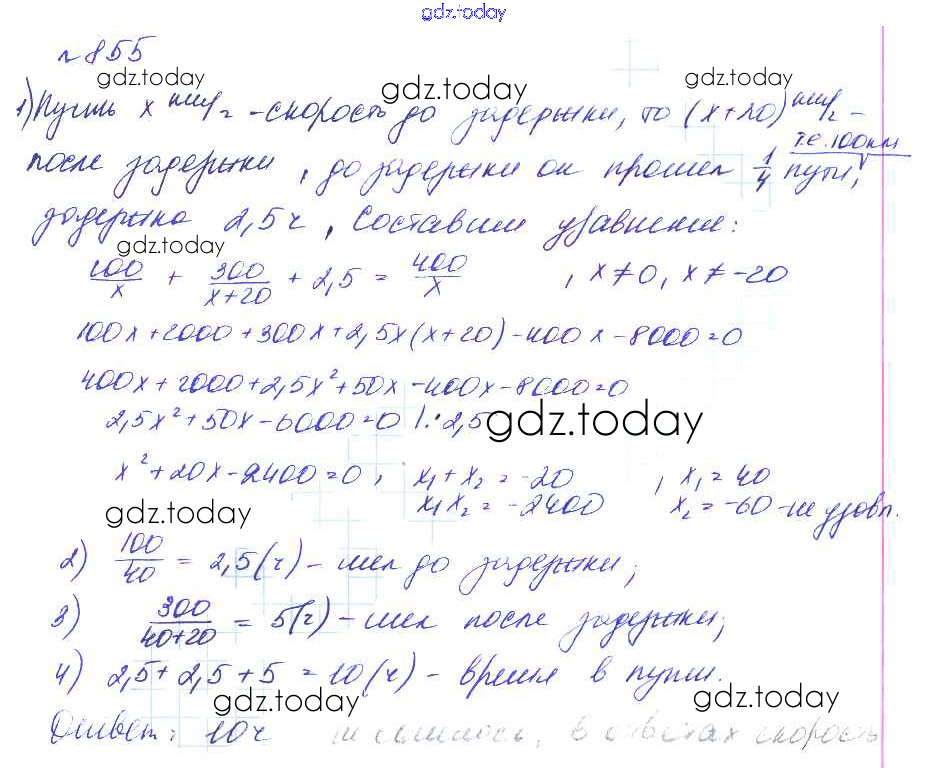 gdz.today
№855
gdz.today gdz.today gdz.today
1) Пусть x км/ч - скорость до задержки, то (x+20) км/ч -
т.е. 100км
после задержки, до задержки он прошел 1/4 пути,
задержка 2,5ч, Составим уравнение:
gdz.today
100/x + 300/(x+20) + 2,5 = 400/x , x≠0, x≠-20
100x+2000+300x+2,5x(x+20)-400x-8000=0
400x+2000+2,5x²+50x-400x-8000=0
2,5x²+50x-6000=0 |:2,5
gdz.today
x²+20x-2400=0, x₁+x₂=-20 , x₁=40
x₁x₂=-2400 x₂=-60-не удовл.
gdz.today gdz.today
2) 100/40 = 2,5(ч) - шел до задержки;
3) 300/(40+20) = 5(ч) - шел после задержки;
4) 2,5+2,5+5=10(ч) - время в пути.
gdz.today gdz.today
Ответ: 10ч не сошлось, в ответах скорость